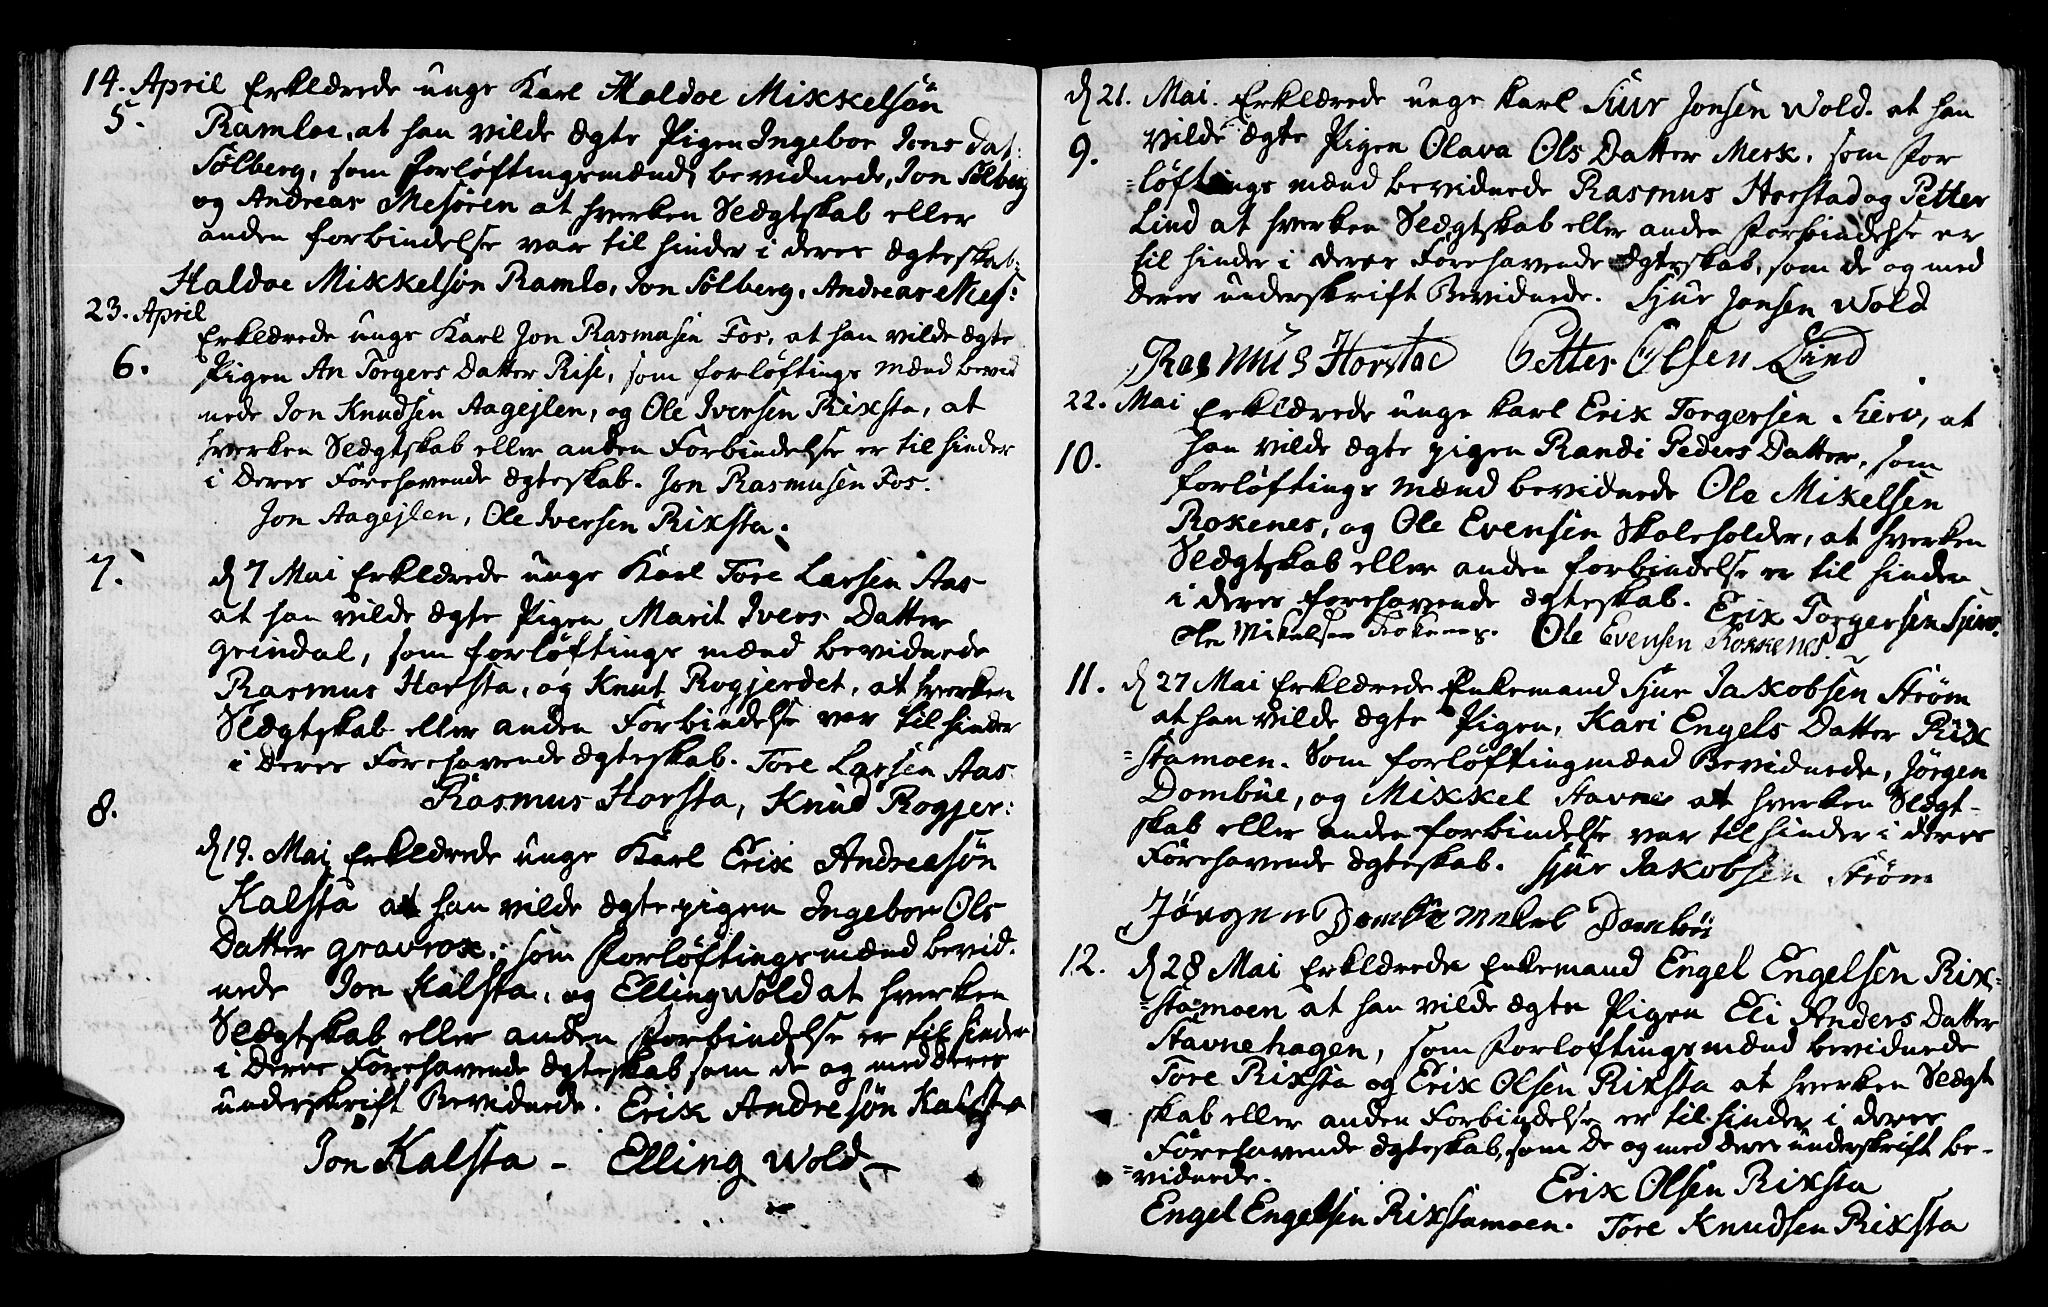 14. April Erklærede unge Karl Haldoe Mikkelsøn
5. Ramloe, at han vilde ægte Pigen Ingebor Jons dat:
Sølberg, som Forløftingsmænd, bevidnede, Jon Sølberg
og Andreas Mesøren at hverken Slægtskab eller
anden forbindelse var til hinder i deres ægteskab:
Haldoe Mikkelsøn Ramlo, Jon Sølberg, Andreas Mes:
23. April
Erklærede unge Karl Jon Rasmusen Fos, at han vilde ægte
6. Pigen An Torgers Datter Rise, som forløftings Mænd bevid
nede Jon Knudsen Aagejlen, og Ole Iversen Rixsta, at
hverken Slægtskab eller anden Forbindelse er til hinder
i deres Forehavende ægteskab. Jon Rasmusen Fos.
Jon Aagejlen, Ole Iversen Rixsta.
7. d 7 Mai Erklærede unge Karl Tore Larsen Aas
at han vilde ægte Pigen Marit Ivers Datter
Grindal, som forløftings mænd bevidnede
Rasmus Horsta, og Knut Rogjerdet, at hverken
Slægtskab eller anden Forbindelse var til hinder
i deres Forehavende ægteskab. Tore Larsen Aas
Rasmus Horsta, Knud Rogjer:
8.
d 19. Mai Erklærede unge Karl Erix Andreasøn
Kalsta at han vilde ægte pigen Ingebor Ols
Datter gravrox. som Forløftingsmænd bevid.
nede Jon Kalsta, og Elling Wold at hverken
Slægtskab eller anden Forbindelse er til hinder
i deres Forehavende ægteskab som de og med deres
underskrift Bevidnede. Erix Andresøn Kalsta
Jon Kalsta - Elling Wold
d 21. Mai. Erklærede unge karl Siur Jonsen Wold. at han
9. vilde ægte Pigen Olava Ols Datter Merk, som For
=løftings mænd bevidnede Rasmus Horstad og Petter
Lind at hverken Slægtskab eller anden Forbindelse er
til hinder i deres Forehavende ægteskab, som de og med
deres underskrift Bevidnede. Sjur Jonsen Wold
Rasmus Horstad Petter Olsen Lind
22. Mai Erklærede unge karl Erix Torgersen Sierv, at
10. han vilde ægte pigen Randi Peders Datter, som
forløftings Mænd bevidnede Ole Mikelsen
Roxenes, og Ole Evensen Skoleholder, at hverken
Slægtskab eller anden forbindelse er til hinder
i deres forehavende ægteskab. Erix Torgersen
Ole Mikelsen Rokenes. Ole Evensen Roxkenes.
11. d 27 Mai Erklærede Enkemand Sjur Jakobsen Strøm
at han vilde ægte Pigen, Kari Engels Datter Rix
=stamoen. Som forløftingmænd Bevidnede, Jørgen
Dombüe, og Mikkel Stavne at hverken Slægt-
skab eller anden forbindelse var til hinder i deres
Forehavende ægteskab. Sjur Jakobsen Strøm
Jørgen
12. d 28 Mai Erklærede Enkemand Engel Engelsen Rix=
=stamoen at han vilde ægte Pigen Eli Anders Datter
Stavnehagen, som Forløftingsmænd bevidnede
Tore Rixsta og Erix Olsen Rixsta at hverken Slægt
skab eller anden Forbindelse er til hinder i deres
Forehavende ægteskab, som de og med deres underskrift be-
=vidnede. Erix Olsen Rixsta
Engel Engelsen Rixstamoen. Tore Knudsen Rixsta